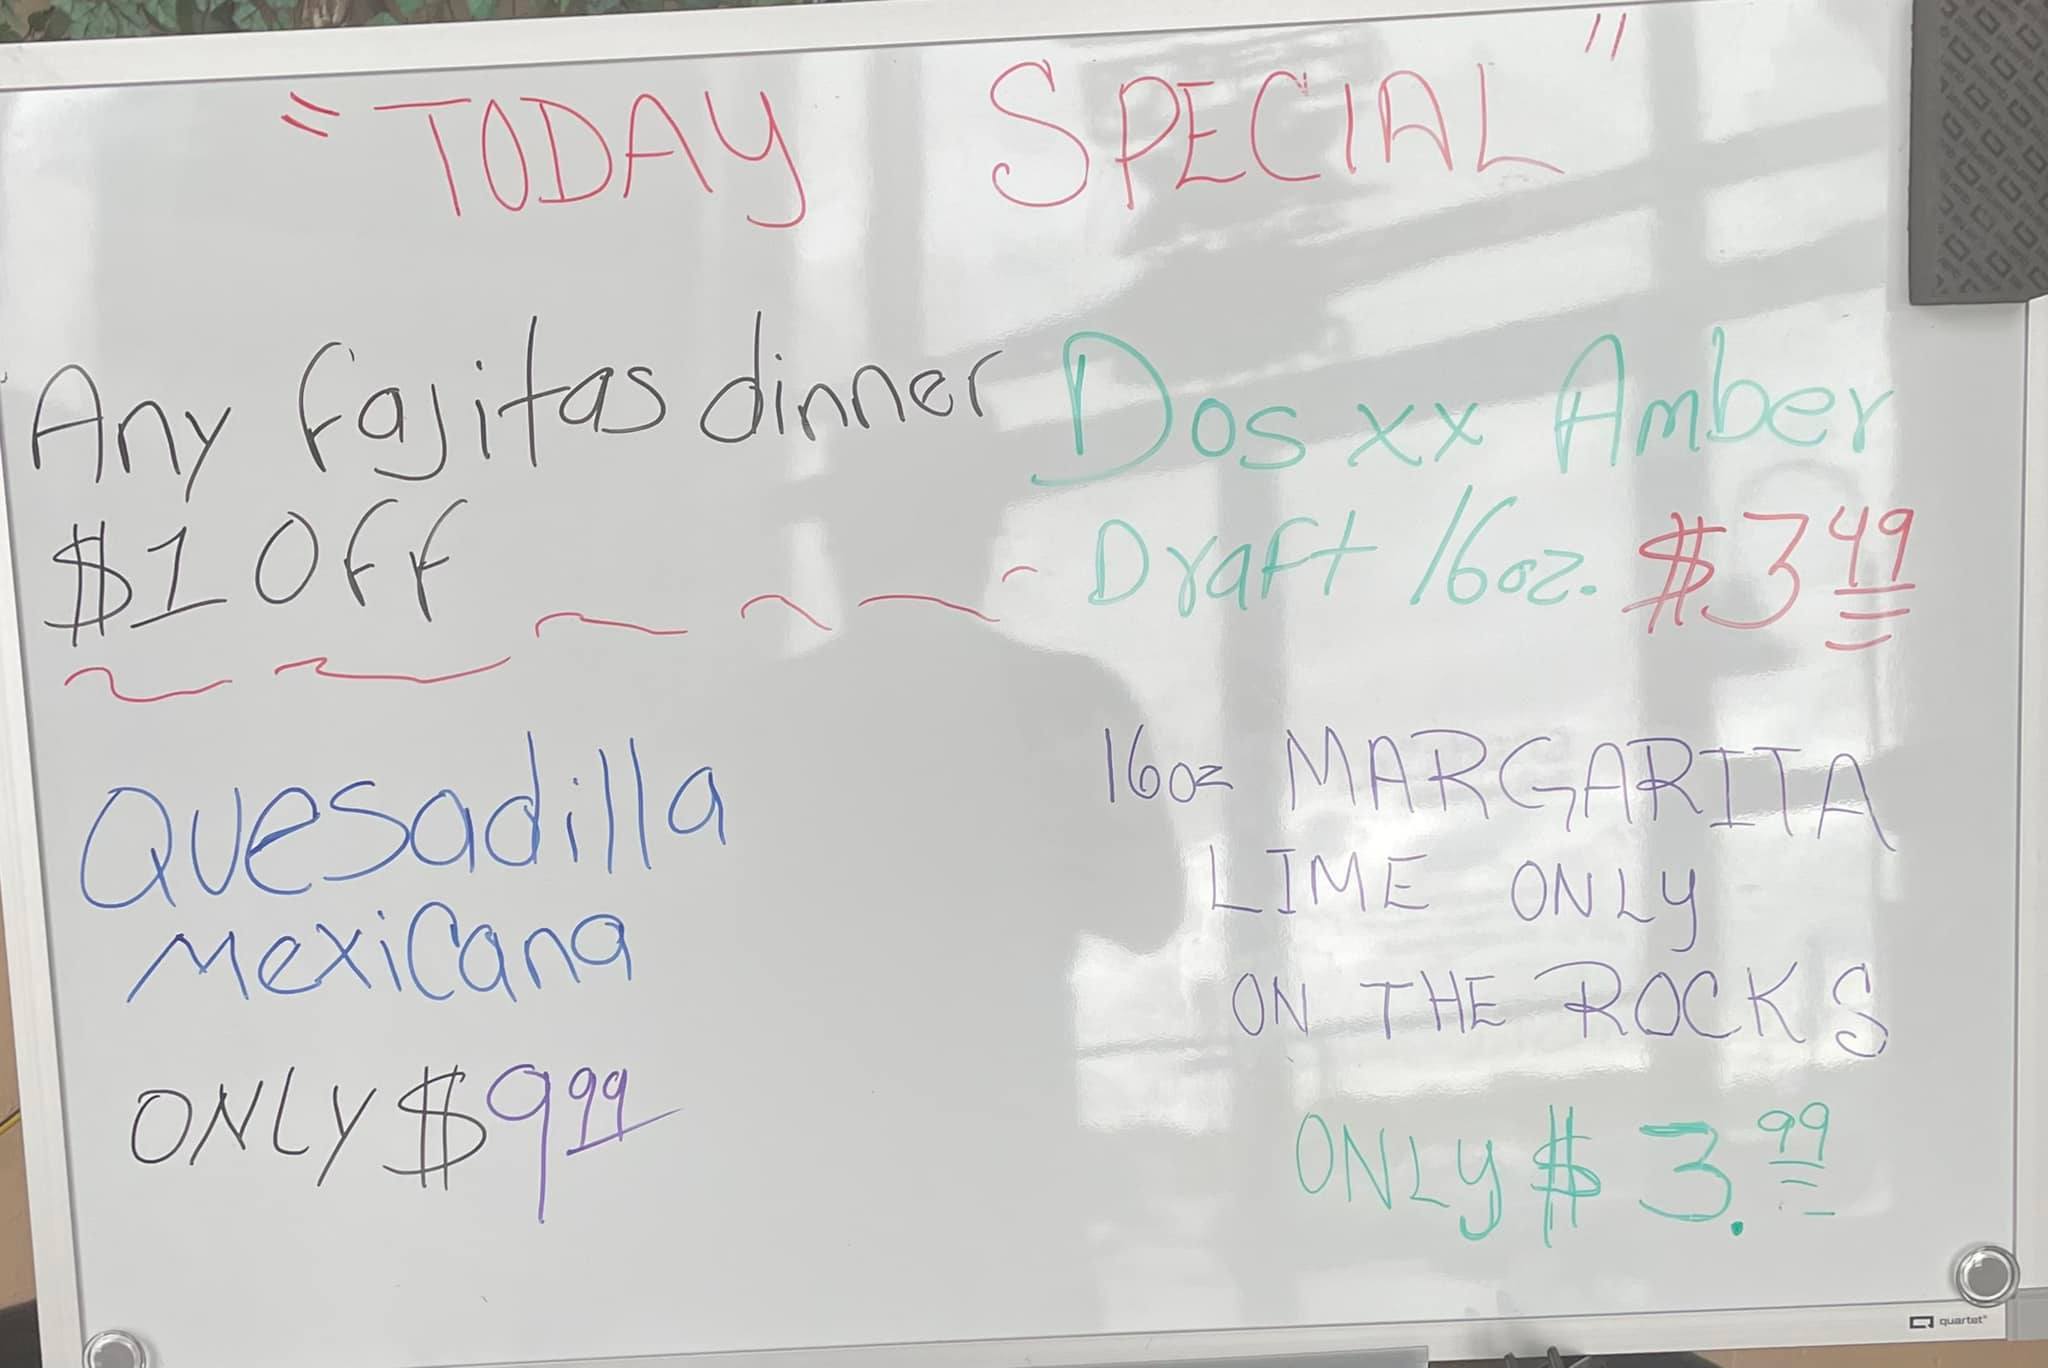 "TODAY SPECIAL"
Any fajitas dinner
$1 Off
Quesadilla
Mexicana
ONLY $9 99
Dos xx Amber
Draft 16oz. $3 49
16oz MARGARITA
LIME ONLY
ON THE ROCKS
ONLY $3.99
quartet